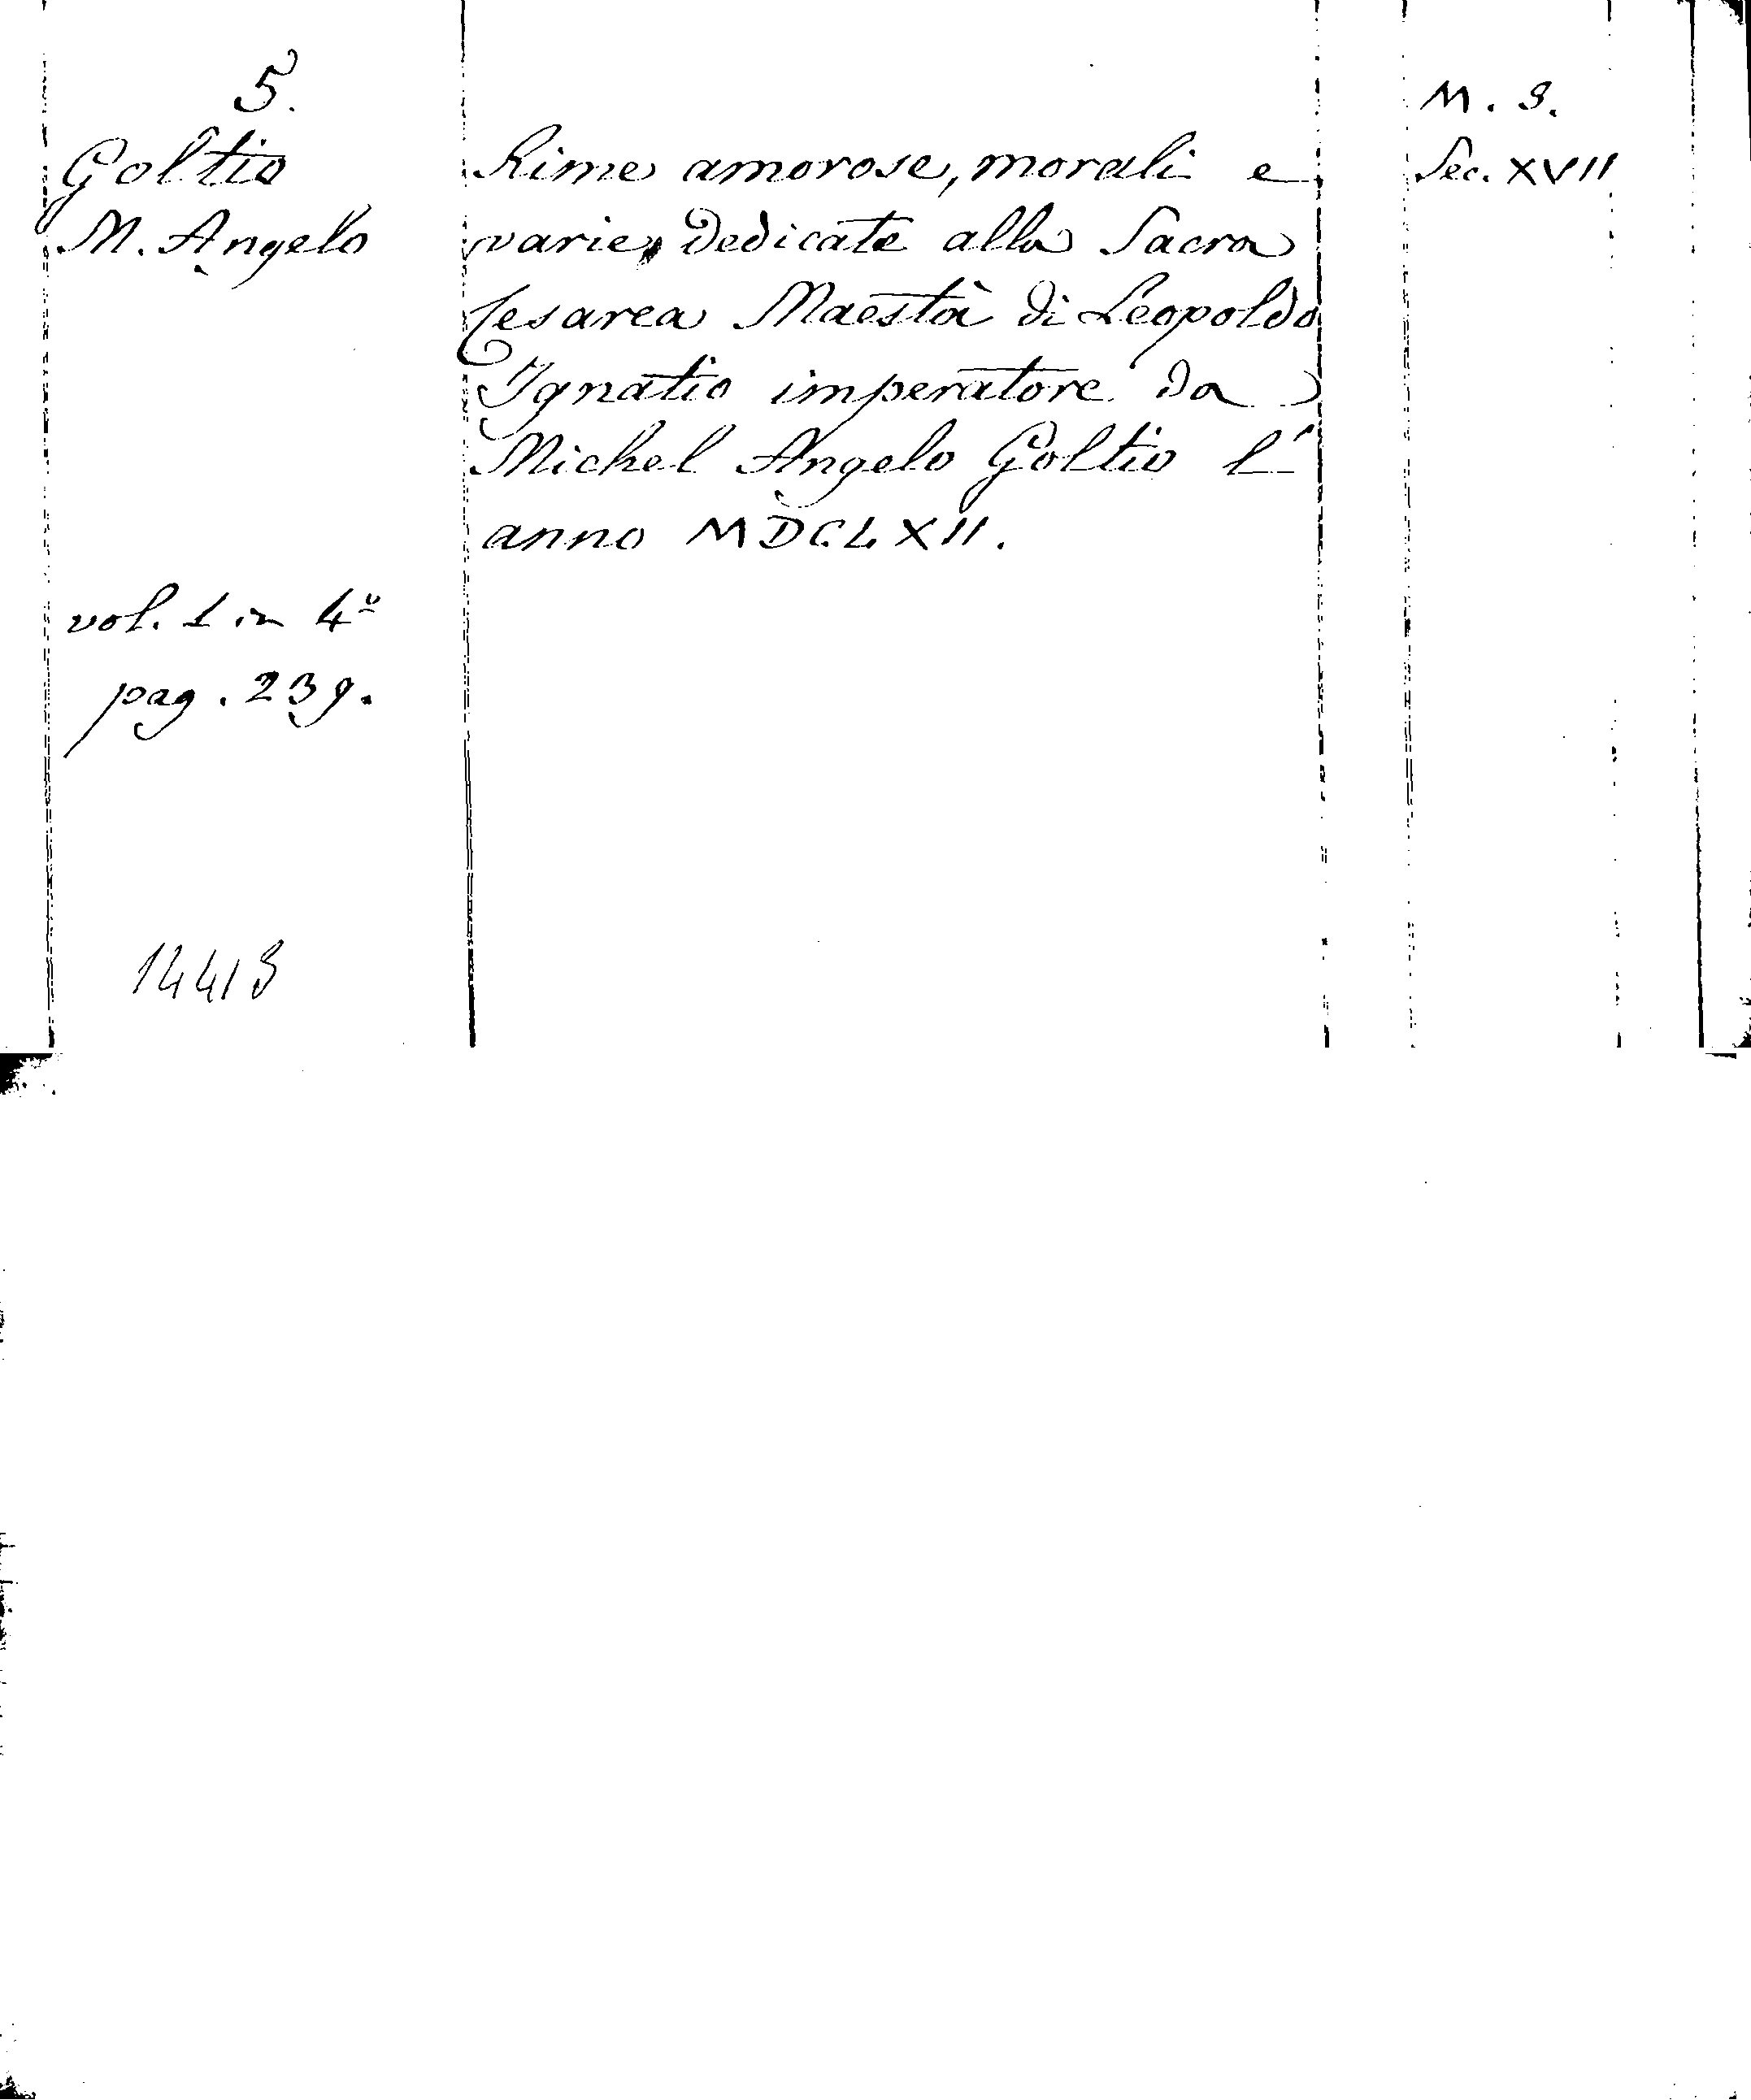 5.
Goltio
M. Angelo
vol. 1 in 4º
pag. 239.
14413
Rime amorose, morali e
varie, dedicate alla Sacra
Cesarea Maestà di Leopoldo
Ignatio imperatore da
Michel Angelo Goltio l'
anno MDCLXII.
M. S.
Sec. XVII